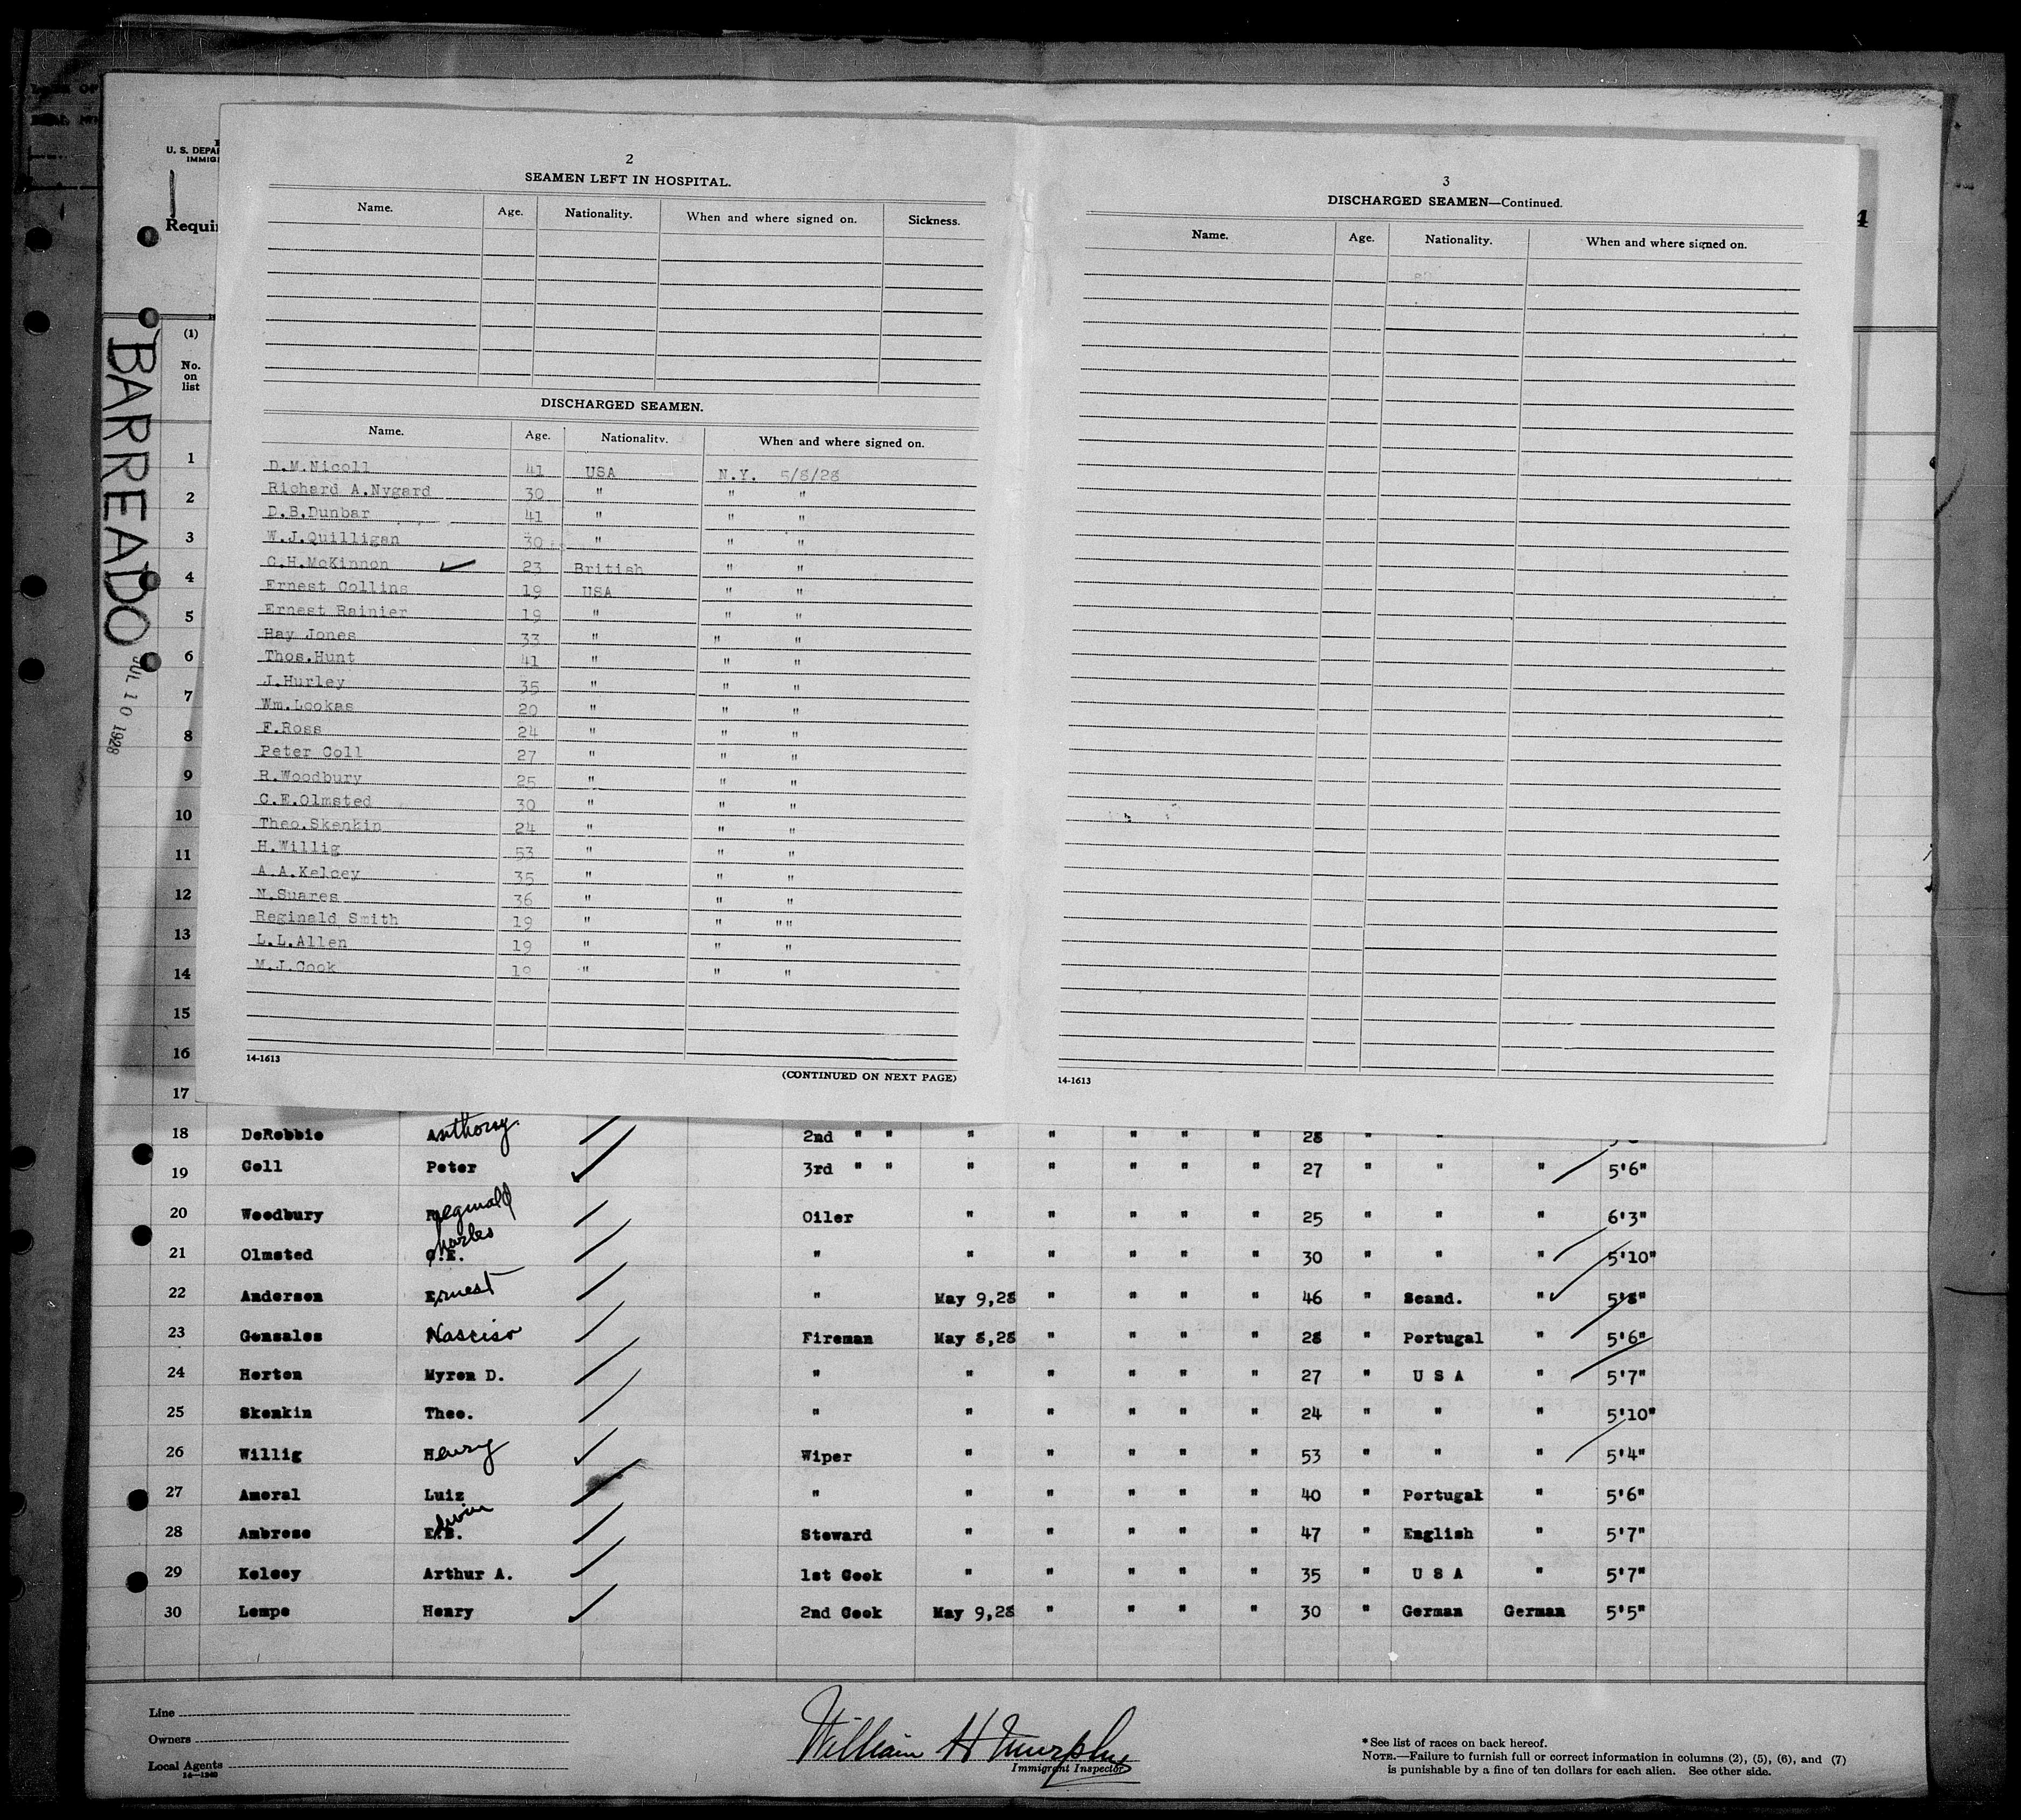 U. S. DEPA
IMMIG
Requi
4
BARREADO
JUL 10 1928
(1)
No.
on
list
2
SEAMEN LEFT IN HOSPITAL.
Name. Age. Nationality. When and where signed on. Sickness.
DISCHARGED SEAMEN.
Name. Age. Nationality. When and where signed on.
D.M.Nicoll 41 USA N.Y. 5/8/28
Richard A.Nygard 30 " " "
D.B.Dunbar 41 " " "
W.J.Quilligan 30 " " "
C.H.McKinnon 23 British " "
Ernest Collins 19 USA " "
Ernest Rainier 19 " " "
Ray Jones 33 " " "
Thos.Hunt 41 " " "
J.Hurley 35 " " "
Wm.Lookas 20 " " "
F.Ross 24 " " "
Peter Coll 27 " " "
R.Woodbury 25 " " "
C.E.Olmsted 30 " " "
Theo.Skenkin 24 " " "
H.Willig 53 " " "
A.A.Kelcey 35 " " "
N.Suares 36 " " "
Reginald Smith 19 " " " "
L.L.Allen 19 " " "
M.J.Cook 19 " " "
14-1613
(CONTINUED ON NEXT PAGE)
3
DISCHARGED SEAMEN—Continued.
Name. Age. Nationality. When and where signed on.
14-1613
1
2
3
4
5
6
7
8
9
10
11
12
13
14
15
16
17
18 DeRobbio Anthony 2nd " " " " " " " 28 " "
19 Coll Peter 3rd " " " " " " " 27 " " " 5'6"
20 Woodbury Reginald Oiler " " " " " 25 " " " 6'3"
21 Olmsted Charles C.E. " " " " " " 30 " " " 5'10"
22 Andersen Ernest " May 9,28 " " " " 46 " Scand. " 5'8"
23 Gonsales Nasciso Fireman May 8,28 " " " " 28 " Portugal " 5'6"
24 Horton Myron D. " " " " " " 27 " U S A " 5'7"
25 Skenkin Theo. " " " " " " 24 " " " 5'10"
26 Willig Henry Wiper " " " " " 53 " " " 5'4"
27 Amoral Luiz " " " " " " 40 " Portugal " 5'6"
28 Ambrose E.B. Steward " " " " " 47 " English " 5'7"
29 Kelcey Arthur A. 1st Cook " " " " " 35 " U S A " 5'7"
30 Lempe Henry 2nd Cook May 9,28 " " " " 30 " German German 5'5"
Line
Owners
Local Agents
14—1240
William H Murphy
Immigrant Inspector
* See list of races on back hereof.
NOTE.—Failure to furnish full or correct information in columns (2), (5), (6), and (7)
is punishable by a fine of ten dollars for each alien. See other side.